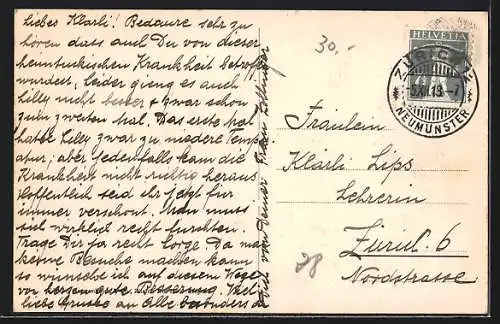 liebes Klärli! Bedaure sehr zu
hören dass auch Du von dieser
heimtückischen Krankheit betrof
wurdest, leider gieng es auch
Lilly nicht besser & zwar schon
zum zweiten hal. Das erste hal
hatte Lilly zwar zu niedere Temper
atur; aber jedenfalls kam die
Krankheit nicht richtig heraus
Hoffentlich seid ihr jetzt für
immer verschont. Man muss
sich wirklich recht fürchten.
Trage Dir ja recht Sorge. Da man
keine Besuche machen kann
so wünsche ich auf diesem Wege
von herzen gute Besserung. Viel
liebe Grüsse an Alle besonders an
Dich von Deiner Frau
30.-
HELVETIA
ZÜRICH
NEUMÜNSTER
Fräulein
Klärli Lips
Lehrerin
Zürich 6
Nordstrasse
28